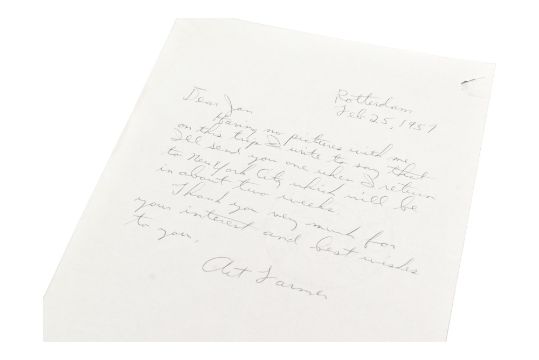 Rotterdam
Feb 25, 1959
Dear Jan
Having no pictures with me
on this trip I write to say that
I'll send you one when I return
to New York City which will be
in about two weeks.
Thank you very much for
your interest and best wishes
to you.
Art Farmer